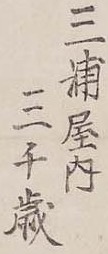 三浦屋内
三千歳